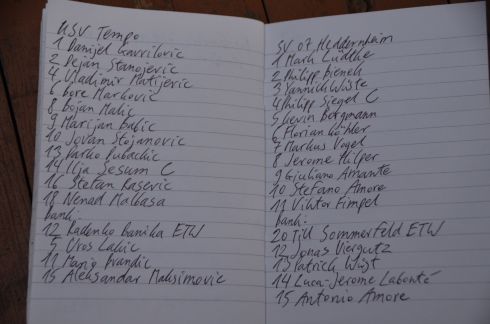 KSV Tempo
1 Danijel Gavrilovic
2 Dejan Stanojevic
4 Vladimir Matijevic
6 bore Markovic
8 bojan Malic
9 Marijan babic
10 Jovan Stojanovic
13 Darko Dubackic
14 Ilja Sesum C
16 Stefan Rasevic
18 Nenad Malbasa
bank:
12 Radenko banika ETW
5 Uros Lakic
11 Mario brandic
15 Aleksandar Maksimovic
SV 07 Heddernheim
1 Mark Lüdke
2 Philipp bieneh
3 Yannich Wüste
4 Philipp Siegel C
5 Kevin bergmann
6 Florian Köhler
7 Markus Vogel
8 Jerome Hilper
9 Giuliano Amante
10 Stefano Amore
11 Viktor Fimpel
bank:
20 Till Sommerfeld ETW
12 Jonas Viergutz
13 Patrick Wüst
14 Luca-Jerome Labonté
15 Antonio Amore